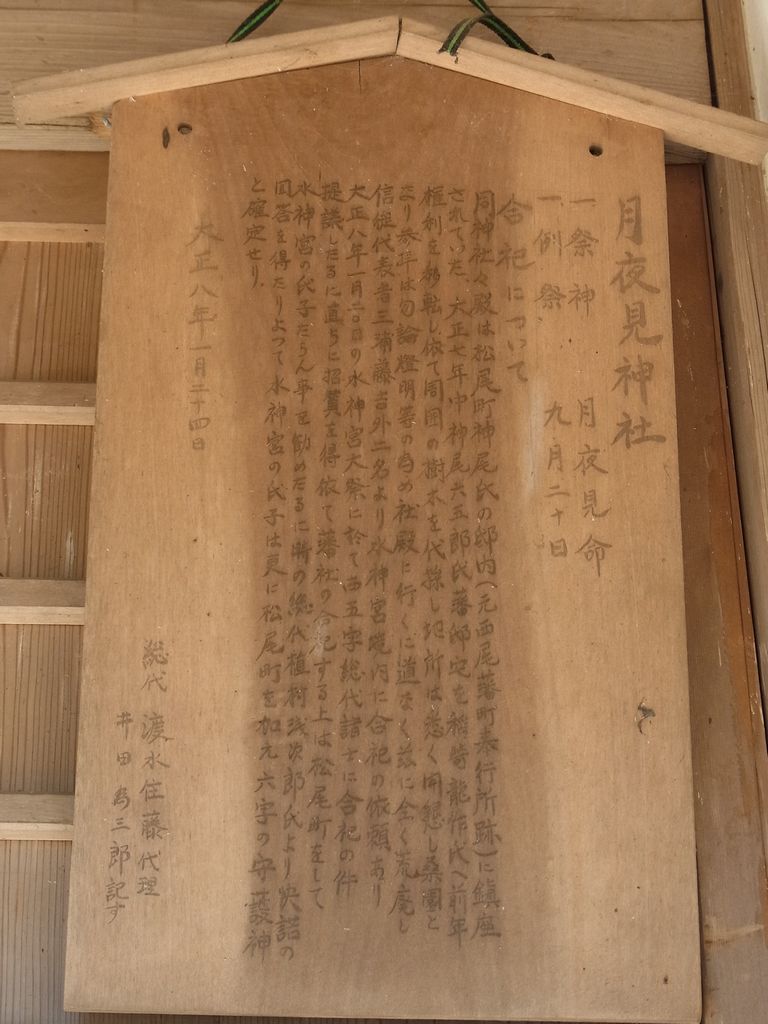 月夜見神社
一、祭神　月夜見命
一、例祭　九月二十日
合祀について
同神社々殿は松尾町神尾氏の邸内（元西尾藩町奉行所跡）に鎮座
されていた、大正七年中神尾六五郎氏藩邸宅を稲崎龍作氏へ前年
権利を移転し依て周囲の樹木を伐採し地所は悉く開懇し桑園と
なり参拝は勿論燈明等の為め社殿に行くに道なく茲に全く荒廃し
信徒代表者三浦藤吉外二名より水神宮境内に合祀の依頼あり
大正八年一月二日の水神宮大祭に於て 五字総代諸士に合祀の件
提議したるに直ちに 賛を得依て 社の合祀する上は松尾町をして
水神宮の氏子たらん事を勧めたるに時の総代植村 次郎氏より 諾の
回答を得たりよつて水神宮の氏子は更に松尾町を加え六字の守護神
と確定せり。
大正八年一月二十四日
総代　渡水住藤代理
井田為三郎記す